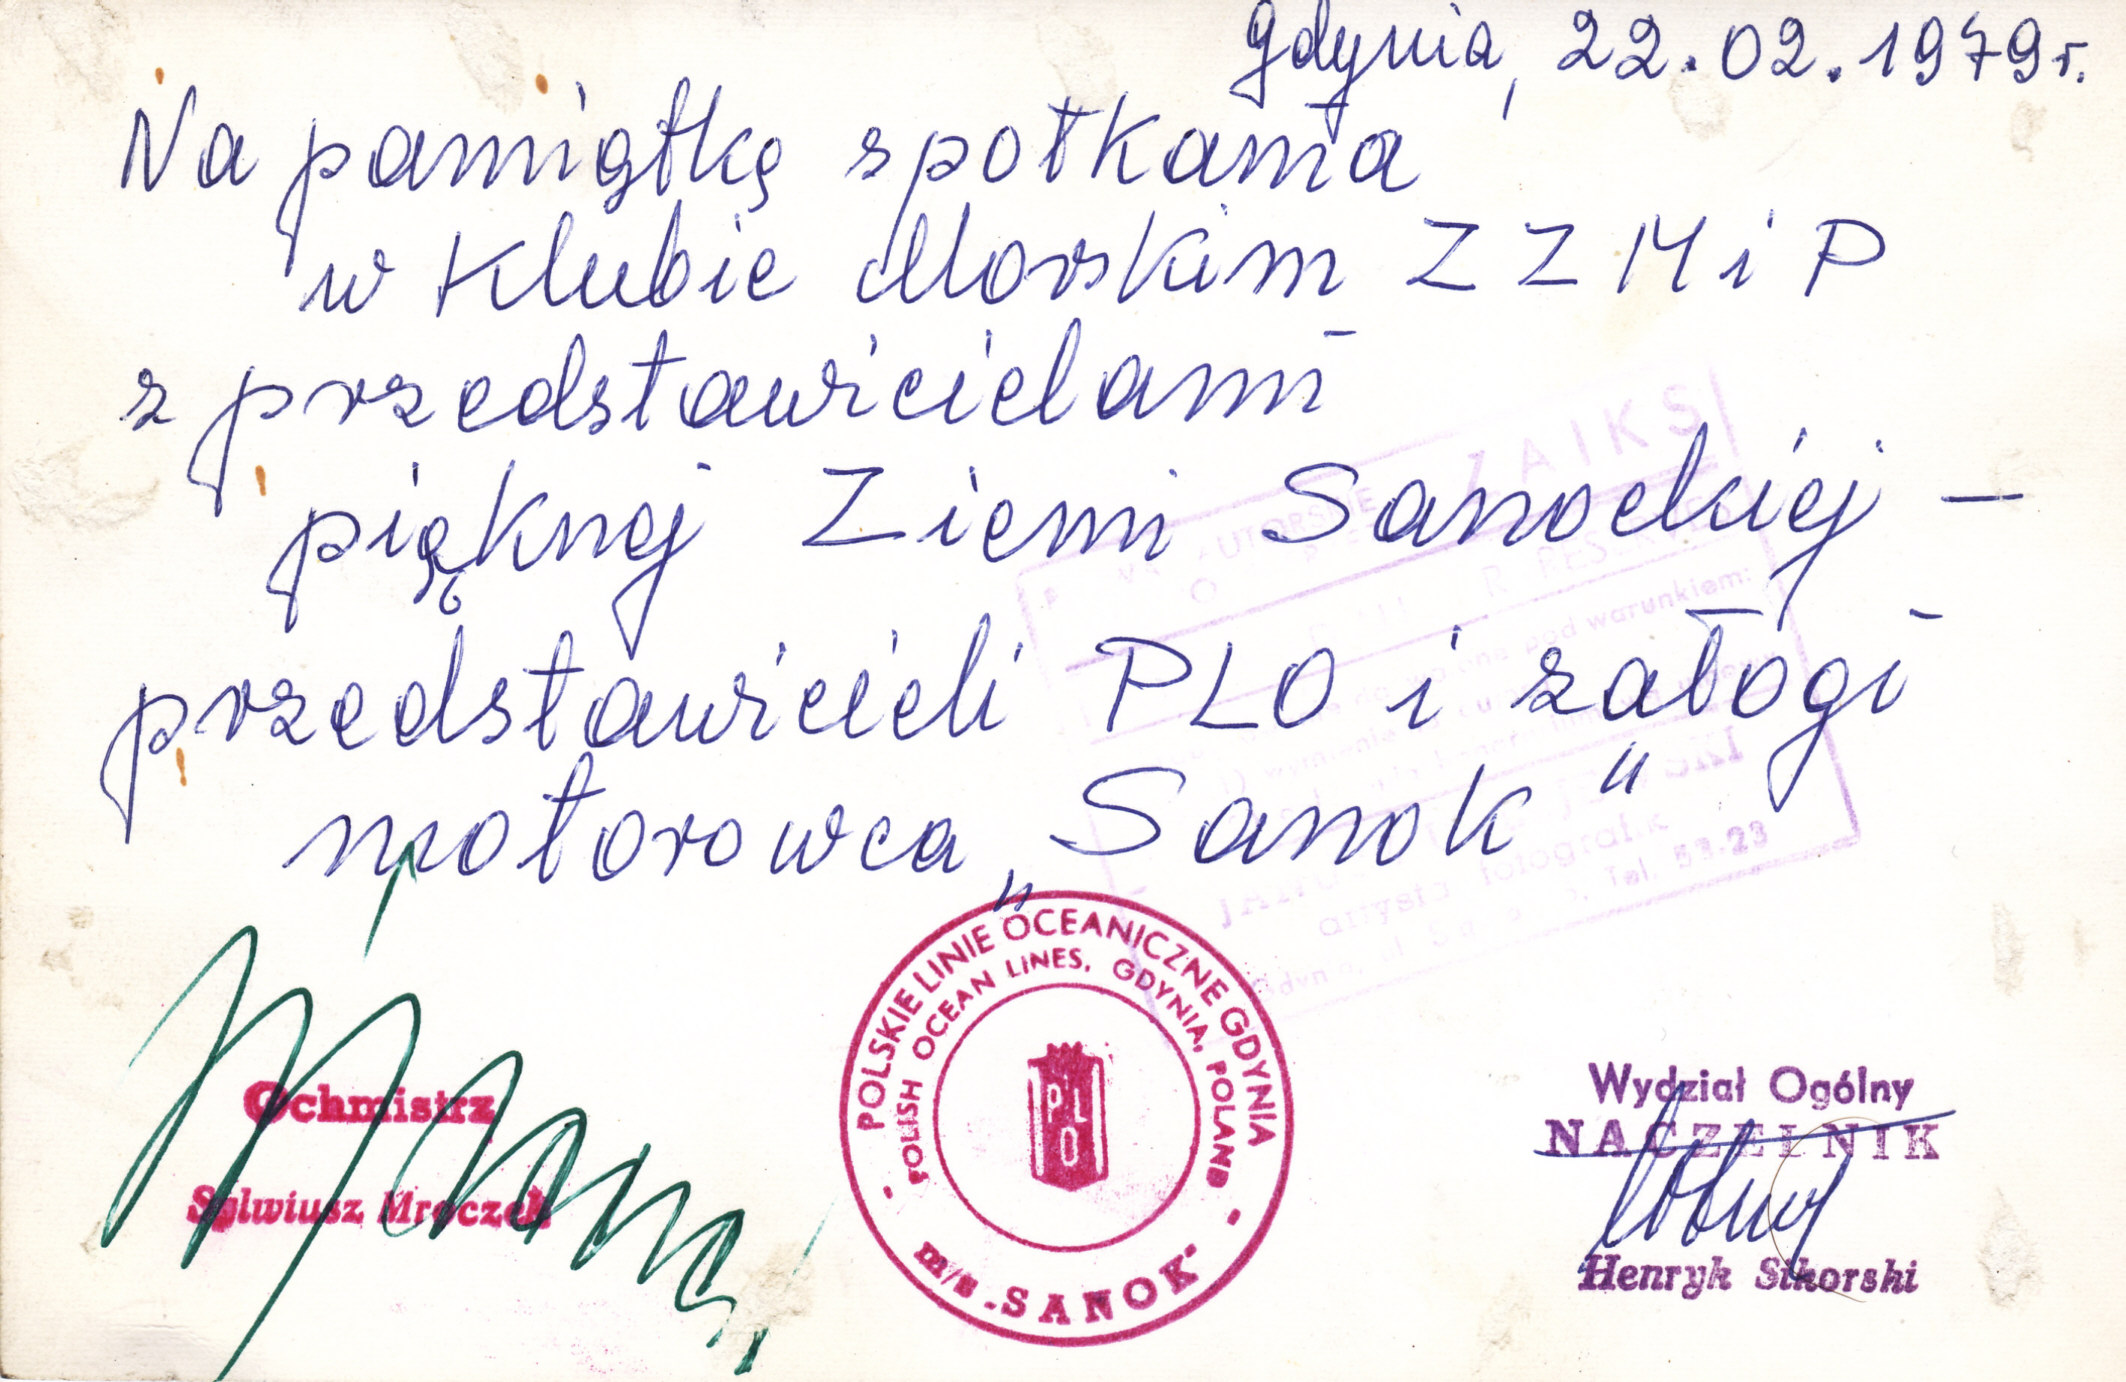 Gdynia, 22.02.1979 r.
Na pamiątkę spotkania
w Klubie Morskim ZZMiP
z przedstawicielami
pięknej Ziemi Sanockiej –
przedstawicieli PLO i załogi
motorowca „Sanok"
ZAIKS
pod warunkiem:
artysta fotografik
Tel. 53-23
POLSKIE LINIE OCEANICZNE GDYNIA
POLISH OCEAN LINES, GDYNIA, POLAND
PLO
m/s „SANOK"
Ochmistrz
Sylwiusz Mroczek
Wydział Ogólny
NACZELNIK
Henryk Sikorski